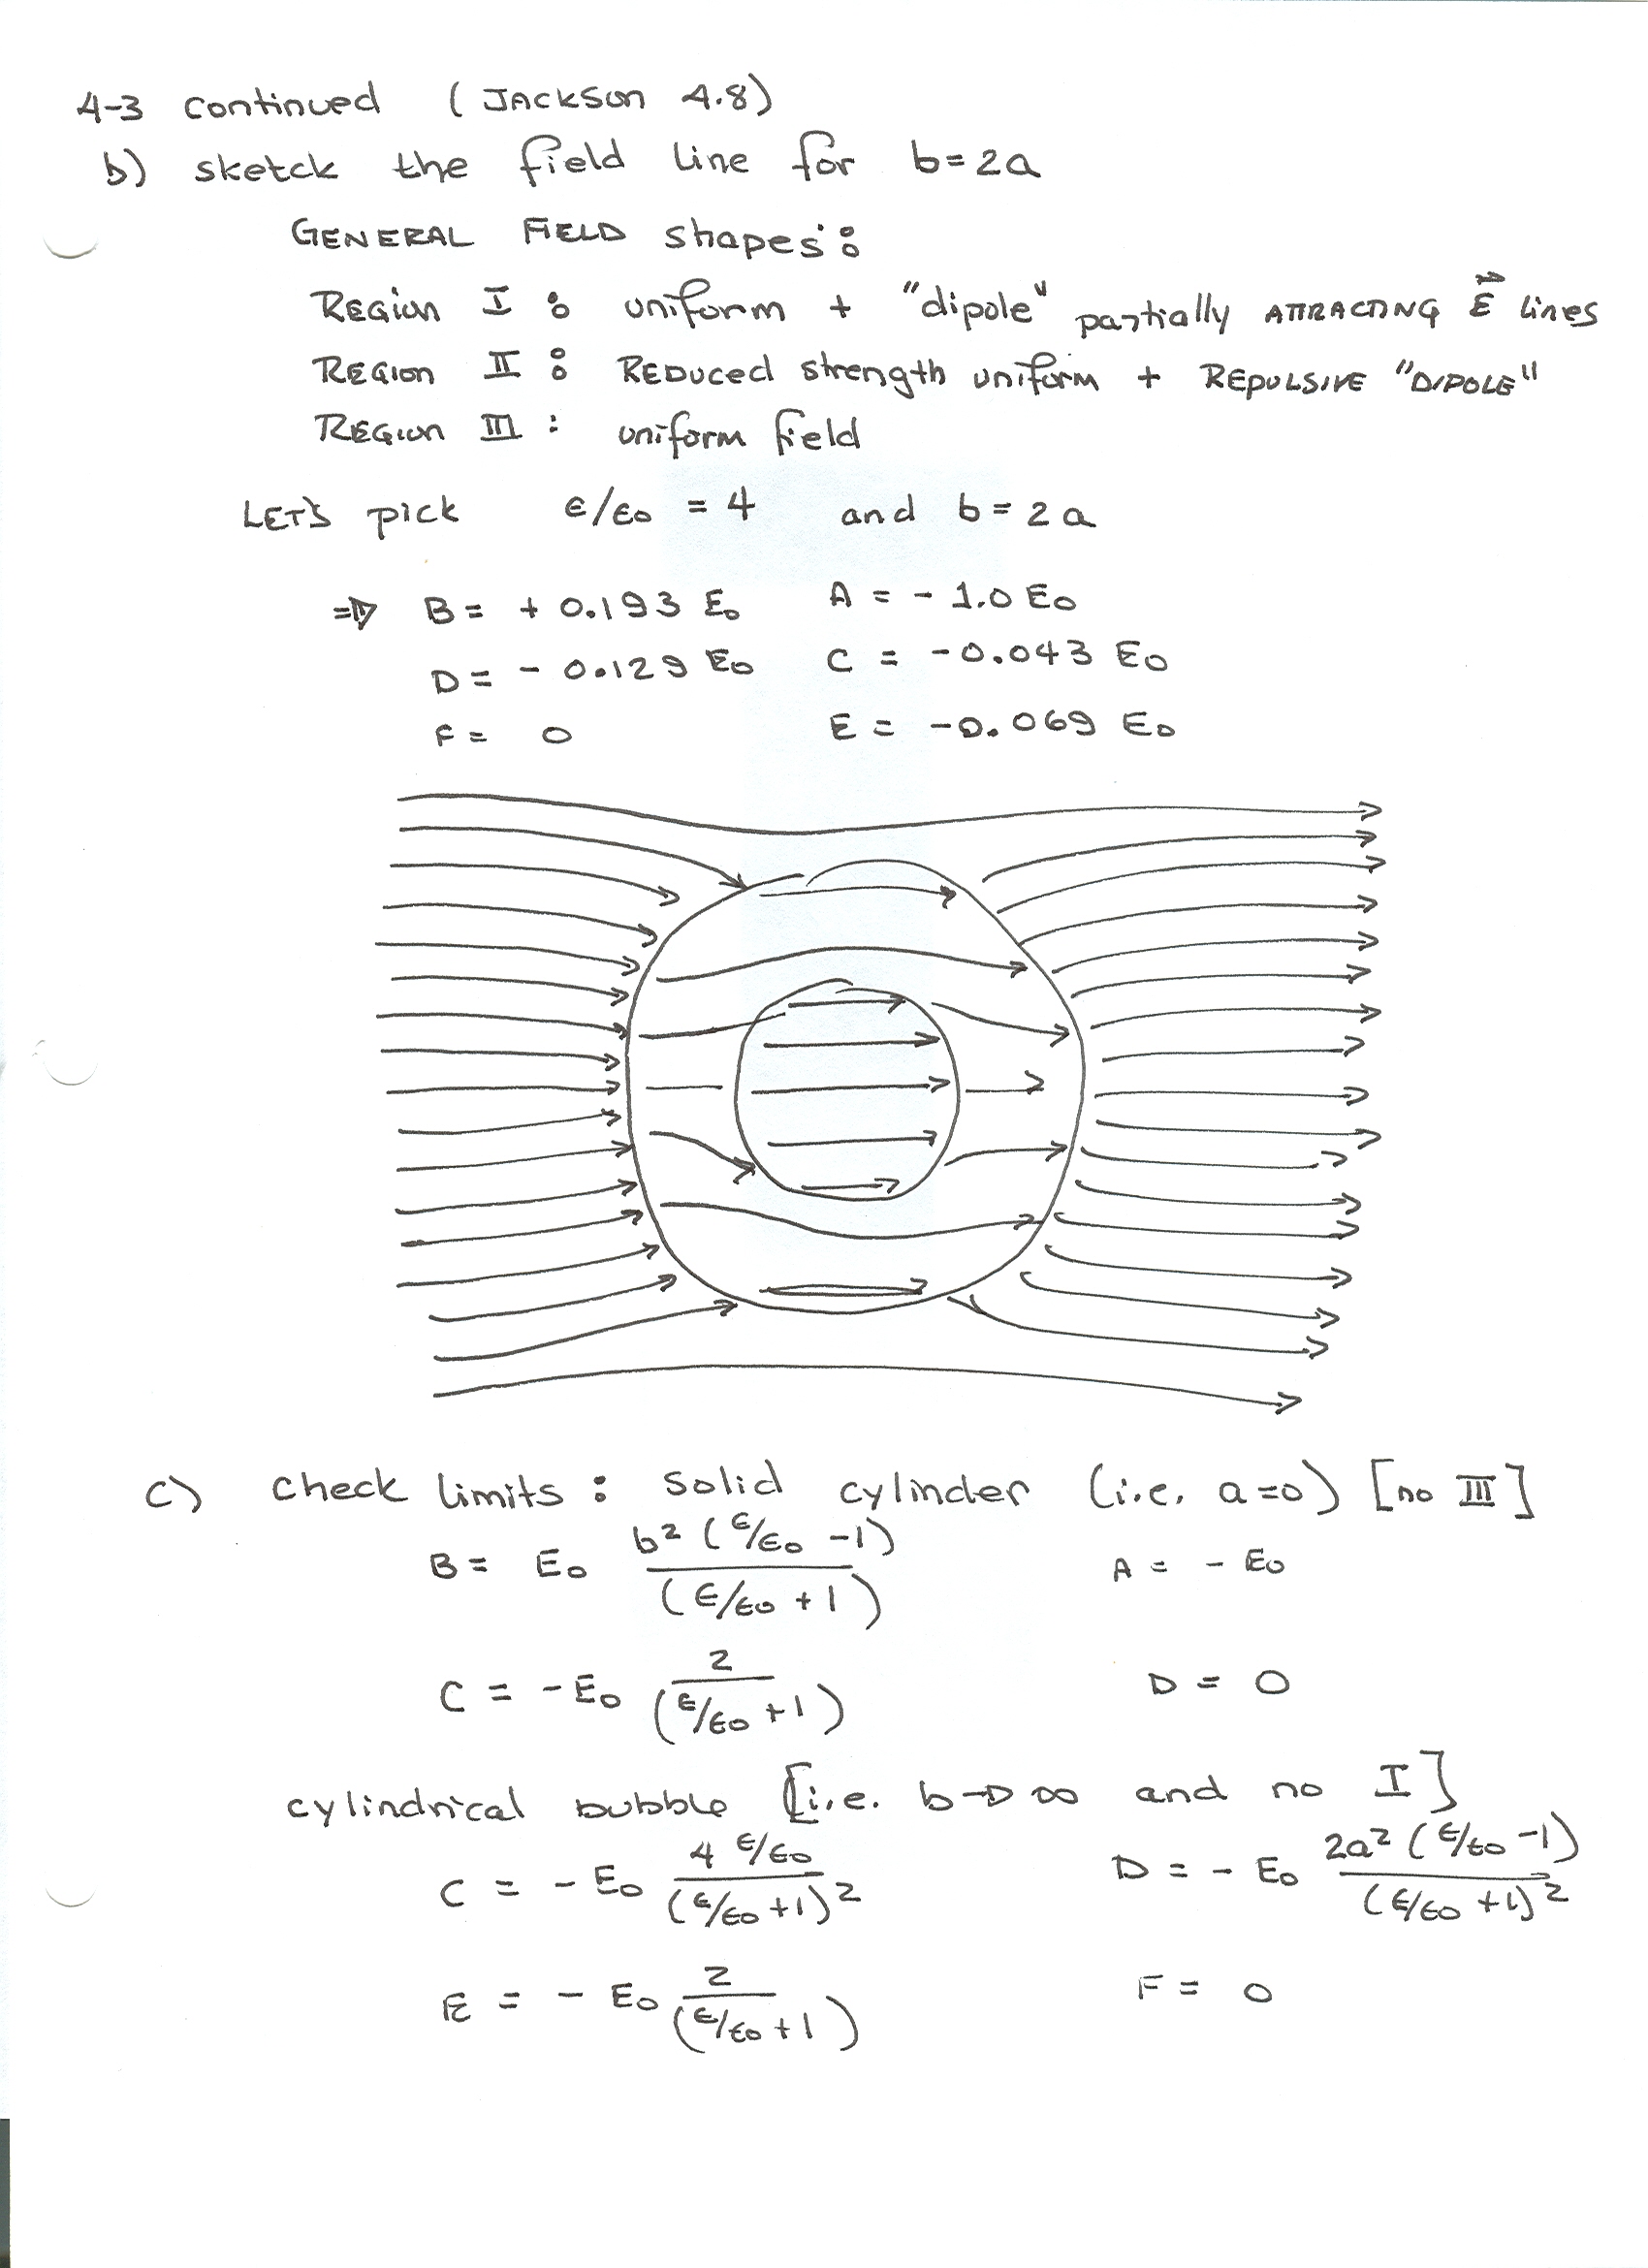 4-3 continued (Jackson 4.8)
b) sketck the field line for b=2a
GENERAL FIELD shapes:
REGION I : uniform + "dipole" partially ATTRACTING E⃗ lines
REGION II : REDuced strength uniform + REPULSIVE "DIPOLE"
REGION III : uniform field
LET'S pick ε/ε₀ = 4 and b = 2a
⇒ B = + 0.193 E₀ A = - 1.0 E₀
D = - 0.129 E₀ C = -0.043 E₀
F = 0 E = -0.069 E₀
c) check limits : solid cylinder (i.e. a=0) [no III]
B = E₀ b² (ε/ε₀ -1) / (ε/ε₀ + 1) A = - E₀
C = - E₀ 2 / (ε/ε₀ + 1) D = 0
cylindrical bubble [i.e. b→∞ and no I]
C = - E₀ 4 ε/ε₀ / (ε/ε₀ +1)² D = - E₀ 2a² (ε/ε₀ -1) / (ε/ε₀ +1)²
E = - E₀ 2 / (ε/ε₀ + 1) F = 0